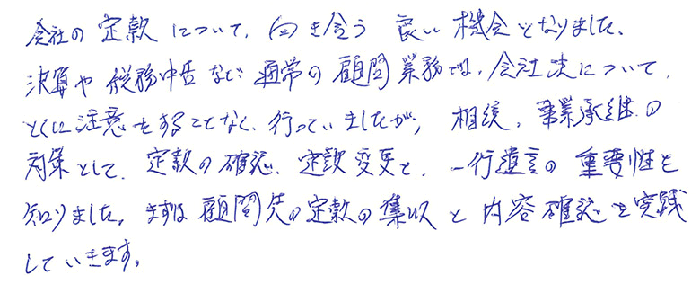 会社の定款について、向き合う良い機会となりました。
決算や税務申告など通常の顧問業務では、会社法について、
とくに注意をすることなく、行っていましたが、相続、事業承継の
対策として、定款の確認、定款変更と、一行遺言の重要性を
知りました。まずは顧問先の定款の収集と内容確認を実践
していきます。